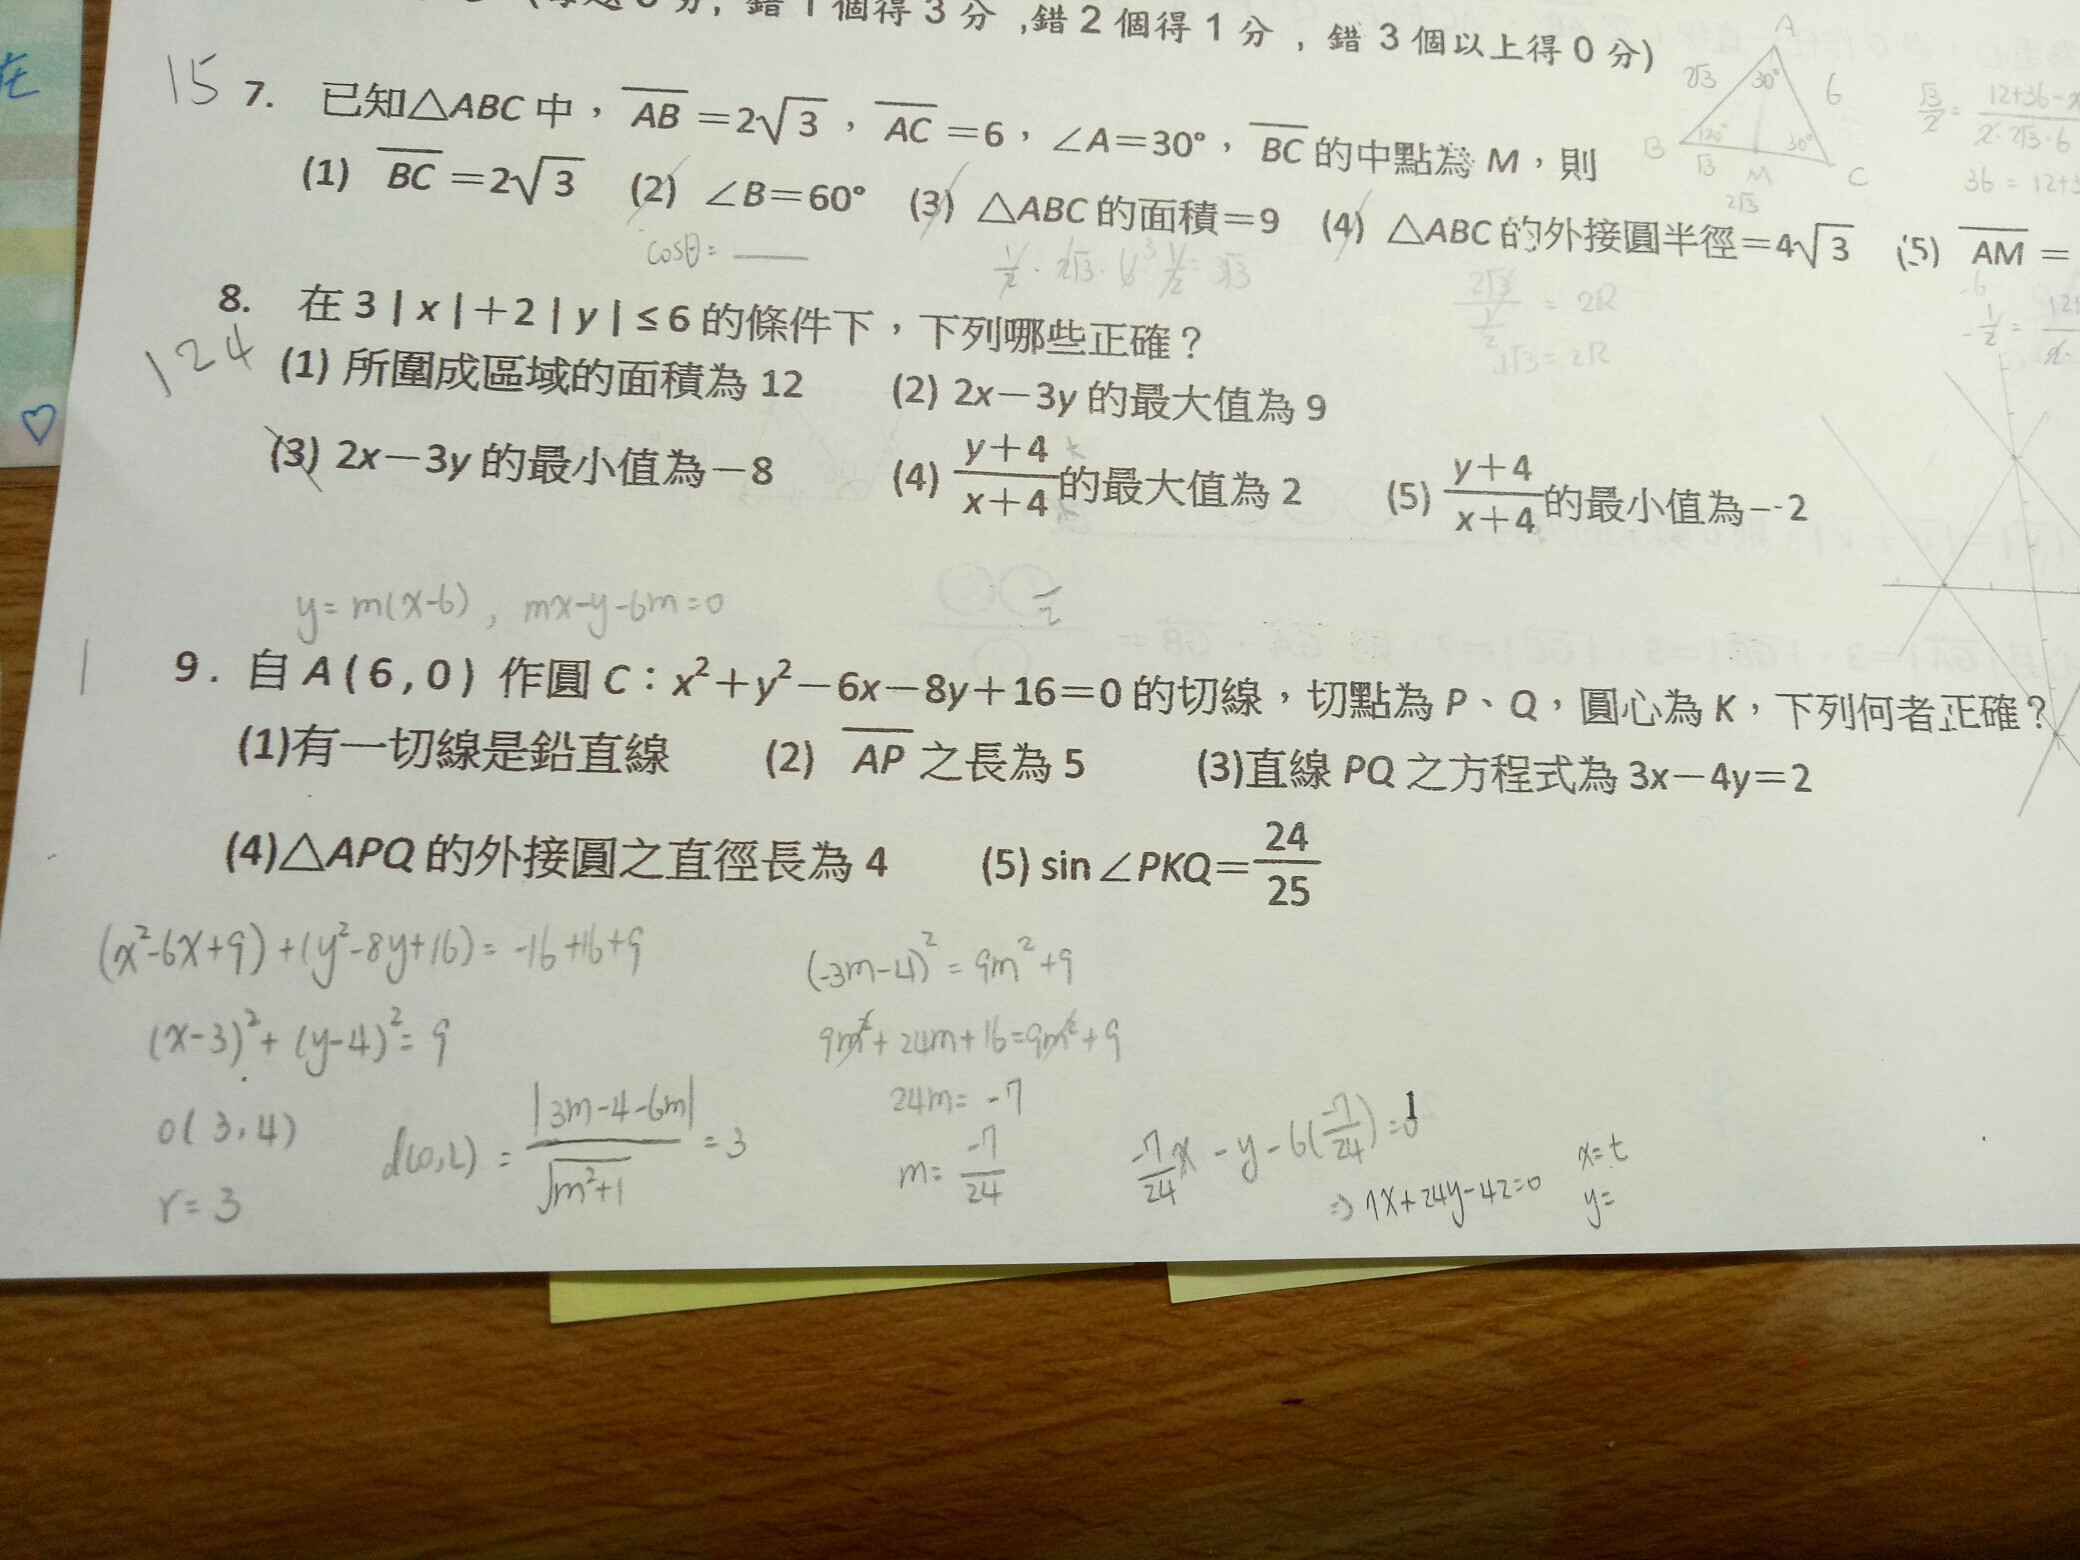 在
分, 錯 1 個得 3 分 ,錯 2 個得 1 分 , 錯 3 個以上得 0 分)
15 7. 已知△ABC 中, AB =2√3, AC =6, ∠A=30°, BC 的中點為 M,則
(1) BC =2√3 (2) ∠B=60° (3) △ABC 的面積=9 (4) △ABC 的外接圓半徑=4√3 (5) AM =
A
2√3 30° 6
B 120° 30° C
√3 M
2√3
√3/2 = 12+36-x
2·2√3·6
36 = 12+3
cosθ=
1/2 · 2√3 · 6 3 1/2 = 3√3
2√3 / 1/2 = 2R
4√3 = 2R
124 8. 在 3|x|+2|y|≤6 的條件下,下列哪些正確?
(1) 所圍成區域的面積為 12 (2) 2x-3y 的最大值為 9
(3) 2x-3y 的最小值為-8 (4) y+4/x+4 的最大值為 2 (5) y+4/x+4 的最小值為-2
y=m(x-6), mx-y-6m=0
1 9. 自 A(6,0) 作圓 C:x²+y²-6x-8y+16=0 的切線,切點為 P、Q,圓心為 K,下列何者正確?
(1)有一切線是鉛直線 (2) AP 之長為 5 (3)直線 PQ 之方程式為 3x-4y=2
(4)△APQ 的外接圓之直徑長為 4 (5) sin∠PKQ=24/25
(x²-6x+9)+(y²-8y+16)=-16+16+9
(x-3)²+(y-4)²=9
O(3,4)
r=3
d(O,L)= |3m-4-6m|/√m²+1 =3
(-3m-4)²=9m²+9
9m²+24m+16=9m²+9
24m=-7
m= -7/24
-7/24 x-y-6(-7/24)=0
⇒ 7x+24y-42=0
x=t
y=